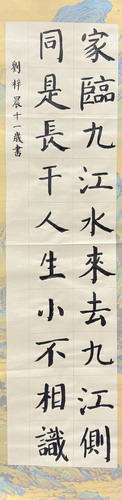 家臨九江水來去九江側
同是長干人生小不相識
劉梓晨十一歲書